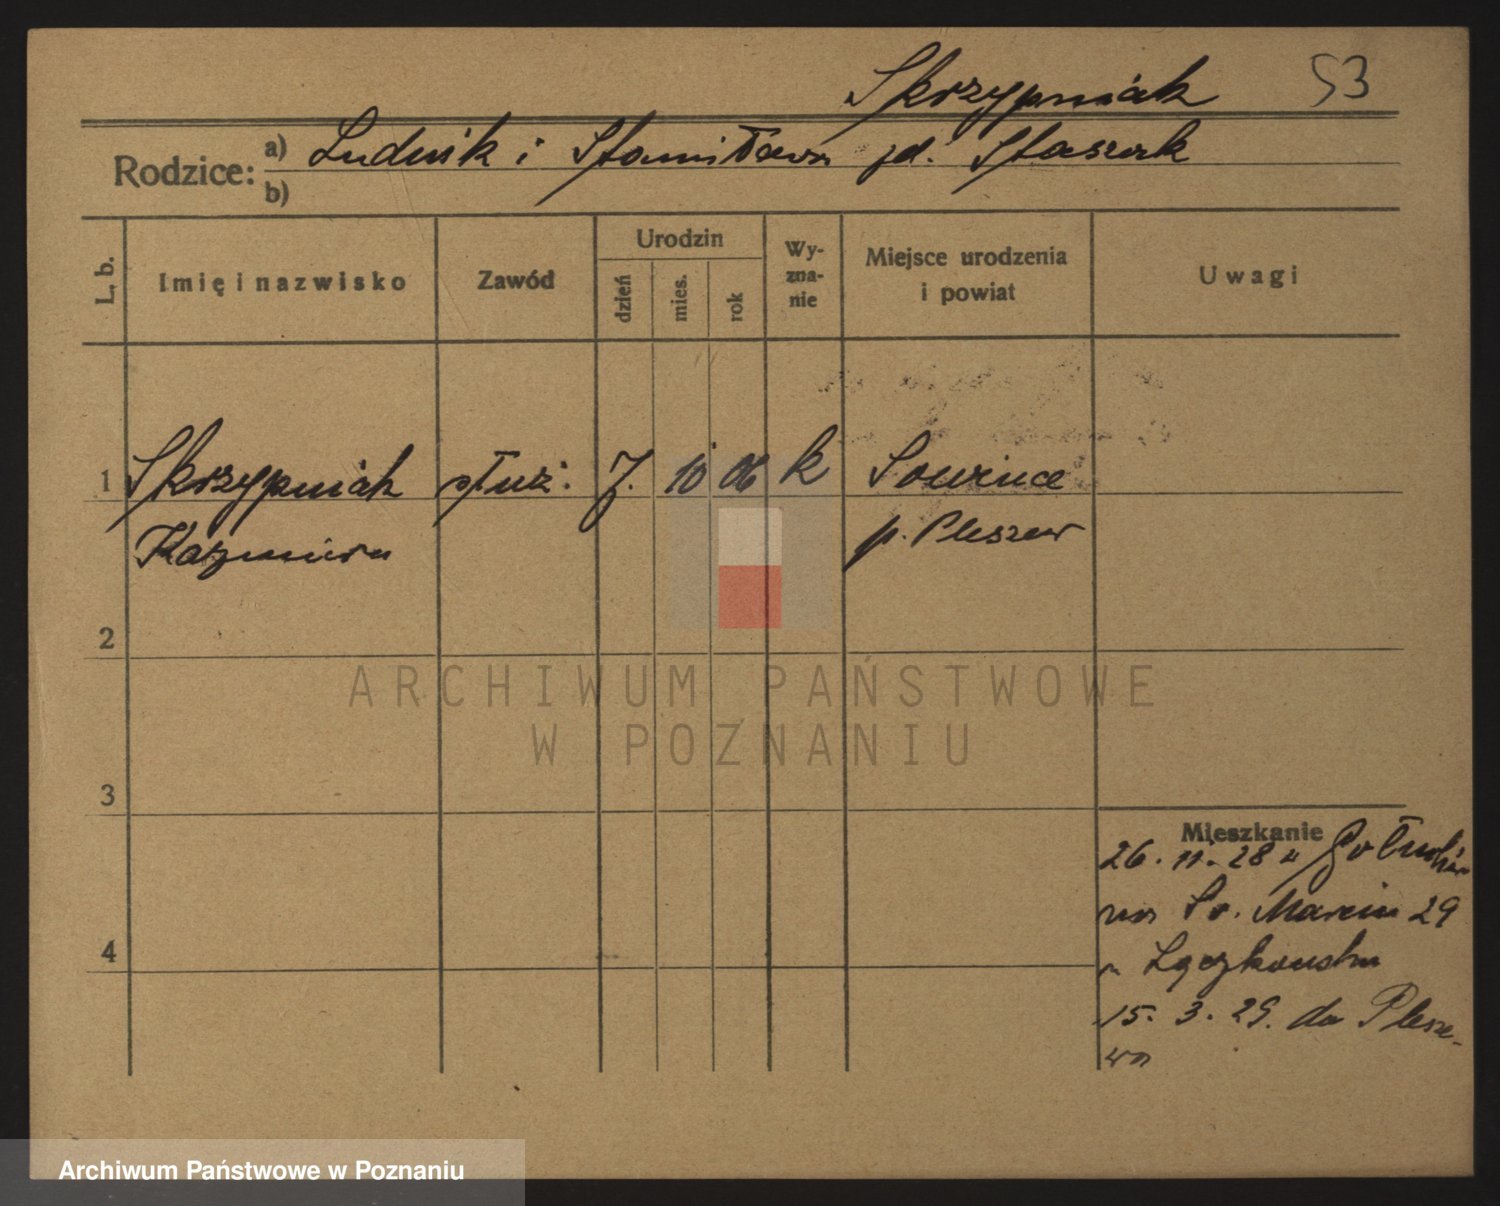 Skrzypniak 53
Rodzice: a) Ludwik i Stanisława zd. Staszak
b)
L. b. Imię i nazwisko Zawód Urodzin dzień mies. rok Wy-zna-nie Miejsce urodzenia i powiat Uwagi
1 Skrzypniak służ. 7. 10 06 k Sowina
Kazimiera p. Pleszew
2
ARCHIWUM PAŃSTWOWE
W POZNANIU
3
Mieszkanie
26. 11. 28 z
na Św. Marcin 29
4
15. 3. 29. do Plesze-
wa
Archiwum Państwowe w Poznaniu